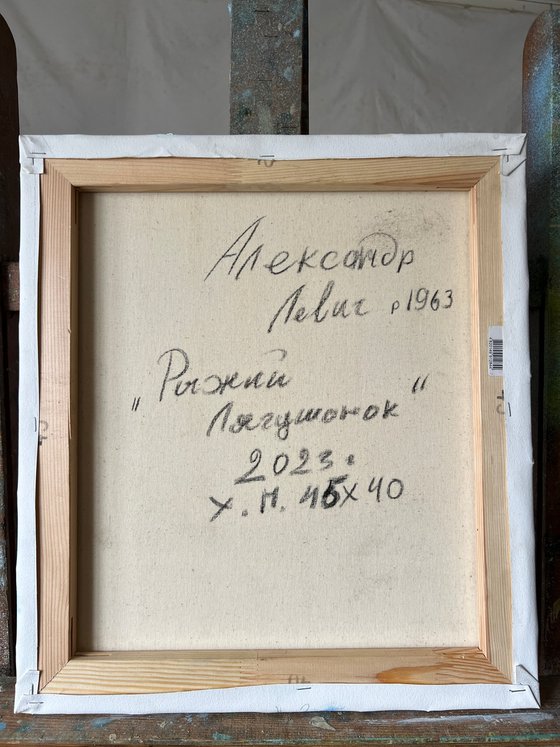 Александр
Левич р 1963
„Рыжий
Лягушонок“
2023.
х. м. 45х40